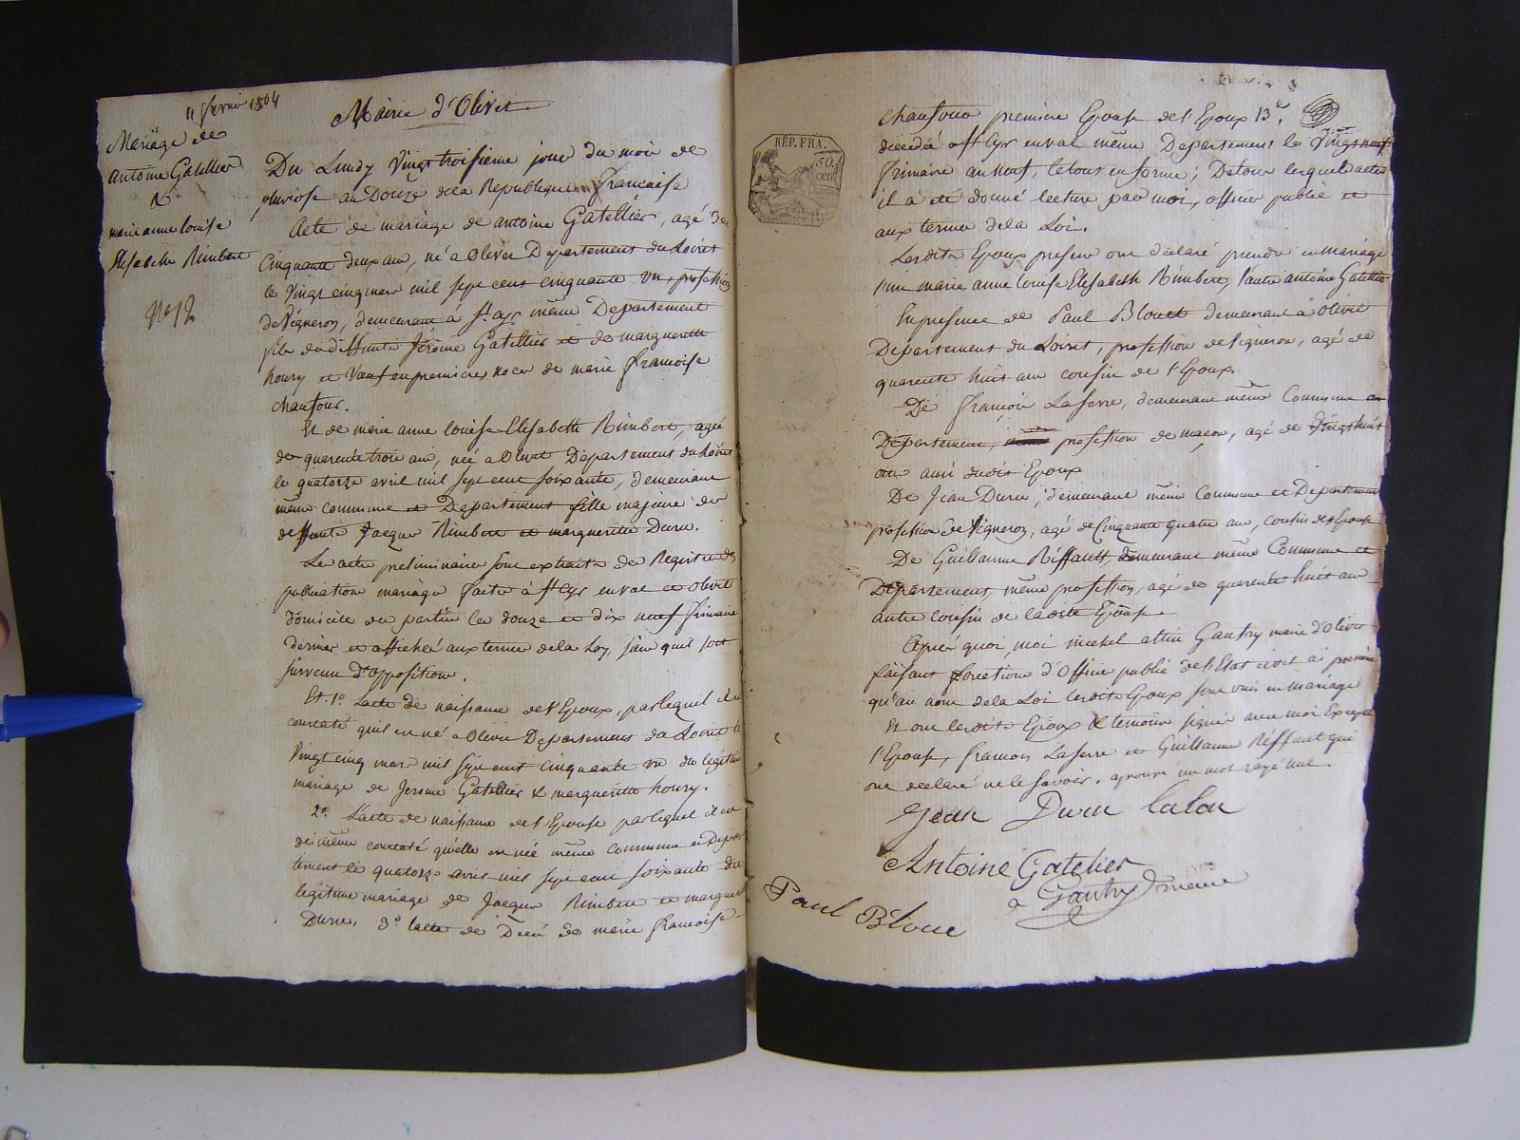 11 février 1804
Mairie d'Olivet
Mariage de
antoine Gatellier
&
marie anne louise
Elisabeth Rimbert
No 12
Du Lundy Vingt troisieme jour du mois de
pluviose an Douze de la Republique francaise
Acte de mariage de antoine Gatellier, agé de
Cinquante deux ans, né a Olivet Departement du Loiret
le Vingt cinq mars mil sept cent cinquante un, profession
de Vigneron, demeurant a St. Cyr même Departement
fils de deffunts Jérôme Gatellier et de marguerite
houry et Veuf en premieres noces de marie francoise
chaufour.
Et de marie anne louise Elisabeth Rimbert, agée
de quarente trois ans, née a Olivet Departement du Loiret
le quatorze avril mil sept cent soixante, demeurant
même commune et Departement fille majeure de
deffunts Jacque Rimbert et marguerite Duru.
Les actes preliminaires sont extraits des Registres des
publications mariage faites à St Cyr en val et Olivet
domicile des parties les douze et dix neuf frimaire
dernier et affichés aux termes de la Loy, sans quil soit
survenu d'opposition.
Et 1o. Lacte de naissance de l'Epoux, par lequel il est
constaté quil est né a Olivet Departement du Loiret le
Vingt cinq mars mil sept cent cinquante un du légitime
mariage de Jerome Gatellier & marguerite houry.
2o. Lacte de naissance de l'Epouse par lequel il est
de même constaté qu'elle est née même commune et Depar
tement le quatorze avril mil sept cent soixante du
legitime mariage de Jacque Rimbert et marguerite
Duru, 3o lacte de Décé de marie francoise
chaufour premiere Epouse de l'Epoux
décédé a St Cyr en val même Departement le Vingt neuf
frimaire an neuf, le tout en forme; De tous lesquels actes
il a été donné lecture par moi, officier public et
aux termes de la Loi.
Lesdits Epoux présens ont déclaré prendre en mariage
l'un marie anne louise Elisabeth Rimbert, l'autre antoine Gatellier
En presence de Paul Blouet demeurant à olivet
Departement du Loiret, profession de Vigneron, agé de
quarente huit ans cousin de l'Epoux
De françois Laferre, demeurant même Commune et
Departement, profession de maçon, agé de Vingt huit
ans ami desdits Epoux
De Jean Duru, demeurant même Commune et Departement
profession de Vigneron, agé de Cinquante quatre ans, cousin de l'Epouse
De Guillaume Riffault, demeurant même Commune et
Departement, même profession, agé de quarente huit ans
autre cousin de ladite Epouse.
Après quoi, moi michel Gautry maire d'Olivet
faisant fonctions d'Officier public de l'Etat civil ai prononcé
qu'au nom de la Loi lesdits Epoux sont unis en mariage
Et ont lesdits Epoux & temoins signés avec moi Excepté
l'Epouse, francois Laferre et Guillaume Riffault qui
ont declaré ne le savoir. approuvé un mot rayé nul.
Jean Duru
Antoine Gatelier
Gautry maire
Paul Bloue
RÉP. FRA.
50
CEN.